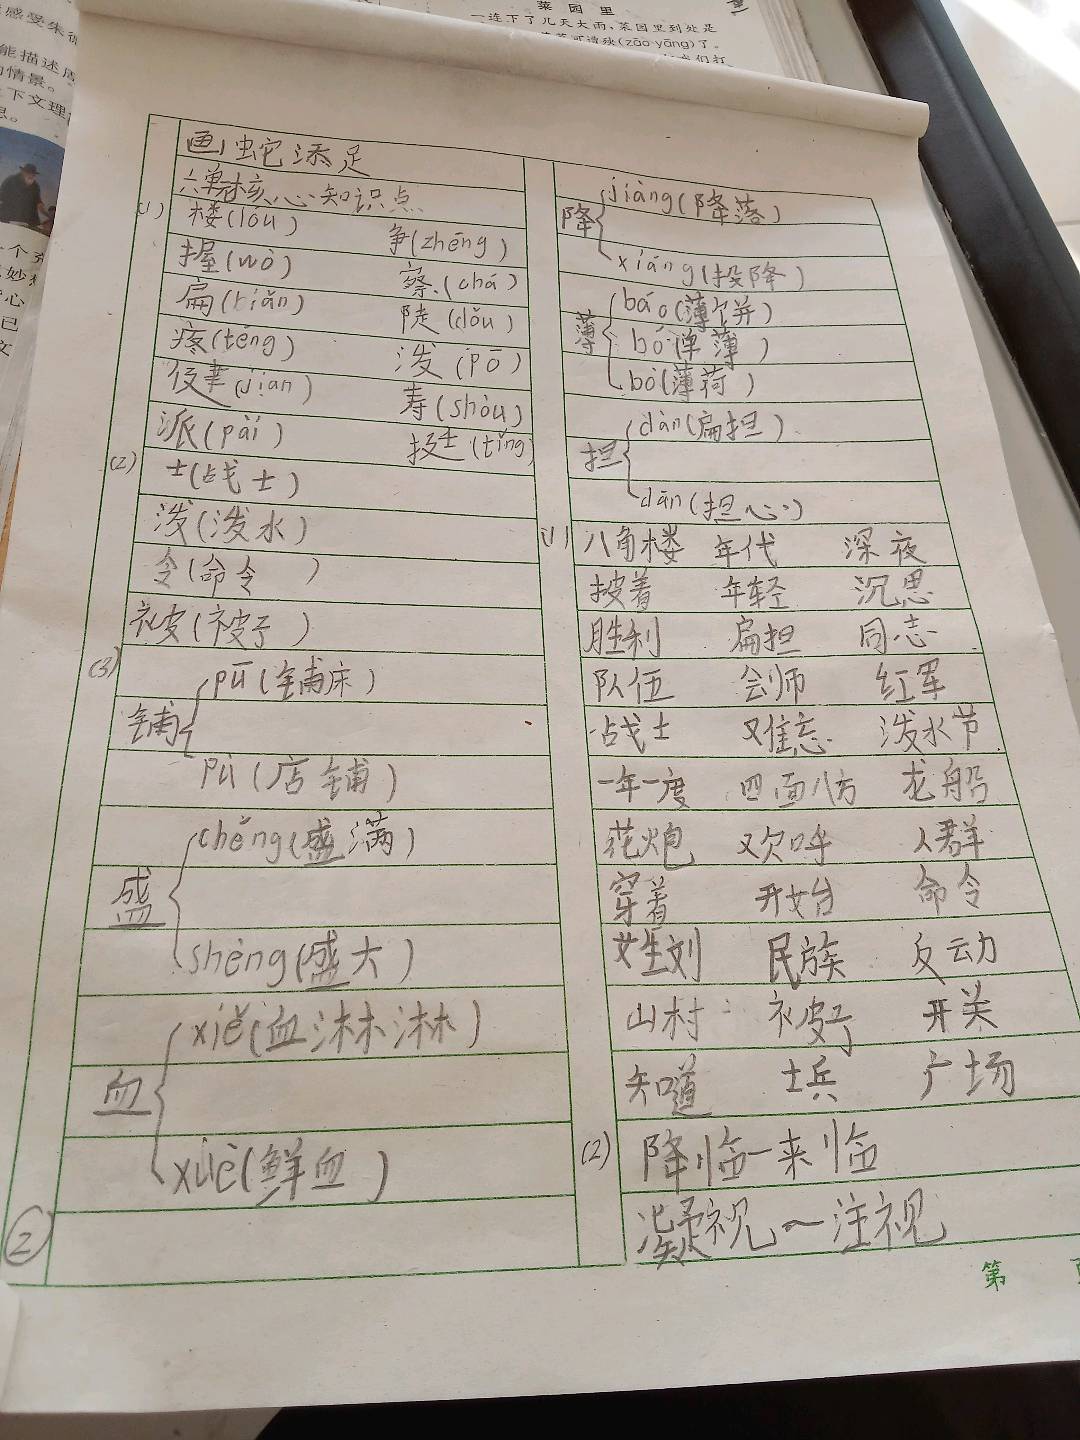 菜园里
一连下了几天大雨,菜园里到处是
(zāo yāng)了。
感受朱
能描述
情景。
下文理
画蛇添足
六单核心知识点
(1) 楼(lóu) 争(zhēng)
握(wò) 察(chá)
扁(biǎn) 陡(dǒu)
疼(téng) 泼(pō)
健(jiàn) 寿(shòu)
派(pài) 挺(tǐng)
(2) 士(战士)
泼(泼水)
令(命令 )
被(被子 )
(3) 铺 pū(铺床)
pù(店铺)
盛 chéng(盛满)
shèng(盛大)
血 xiě(血淋淋)
xuè(鲜血 )
②
降 jiàng(降落)
xiáng(投降)
薄 báo(薄饼)
bó(单薄 )
bò(薄荷)
担 dàn(扁担)
dān(担心)
(1) 八角楼 年代 深夜
披着 年轻 沉思
胜利 扁担 同志
队伍 会师 红军
战士 难忘 泼水节
一年一度 四面八方 龙船
花炮 欢呼 人群
穿着 开始 命令
姓刘 民族 反动
山村 被子 开关
知道 士兵 广场
(2) 降临—来临
凝视~注视
第